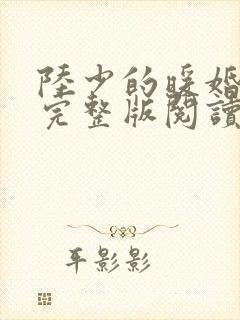 陸少的暖婚
完整版閱讀
平影影